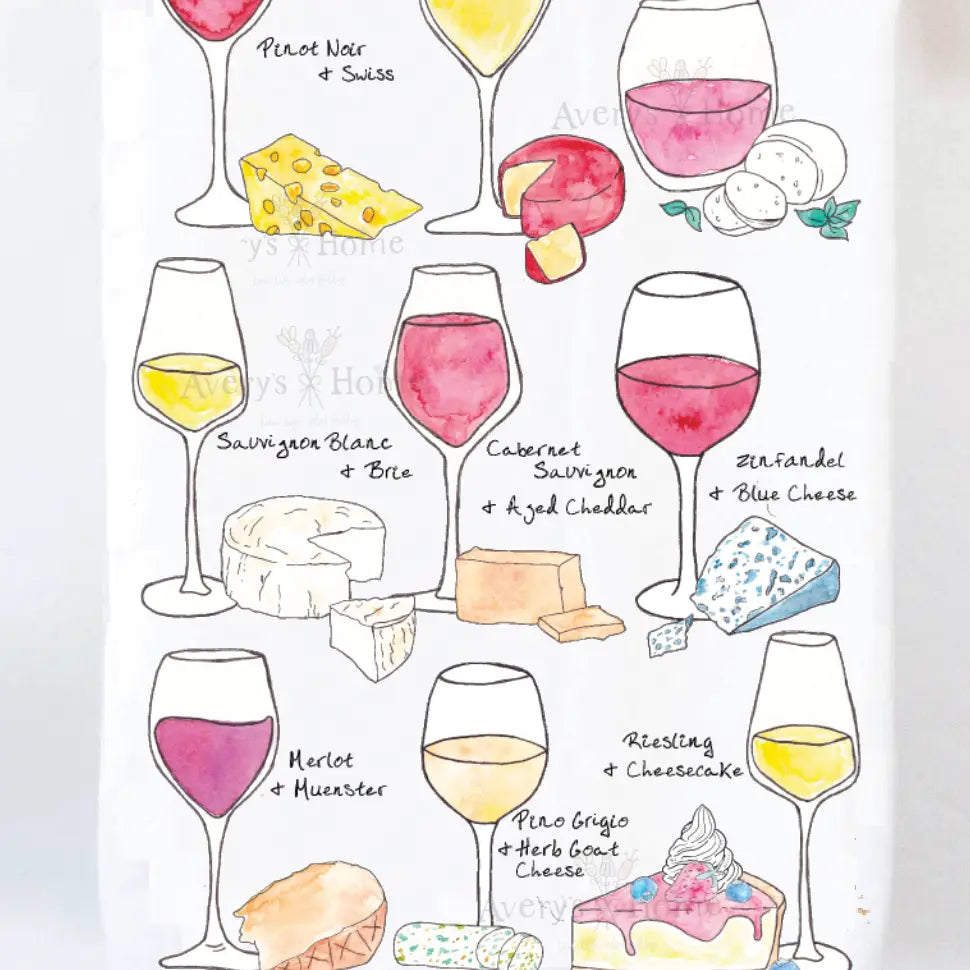 Pinot Noir
& Swiss
Avery's Home
Avery's Home
Avery's Home
Sauvignon Blanc
& Brie
Cabernet
Sauvignon
& Aged Cheddar
Zinfandel
& Blue Cheese
Merlot
& Muenster
Pino Grigio
& Herb Goat
Cheese
Riesling
& Cheesecake
Avery's Home